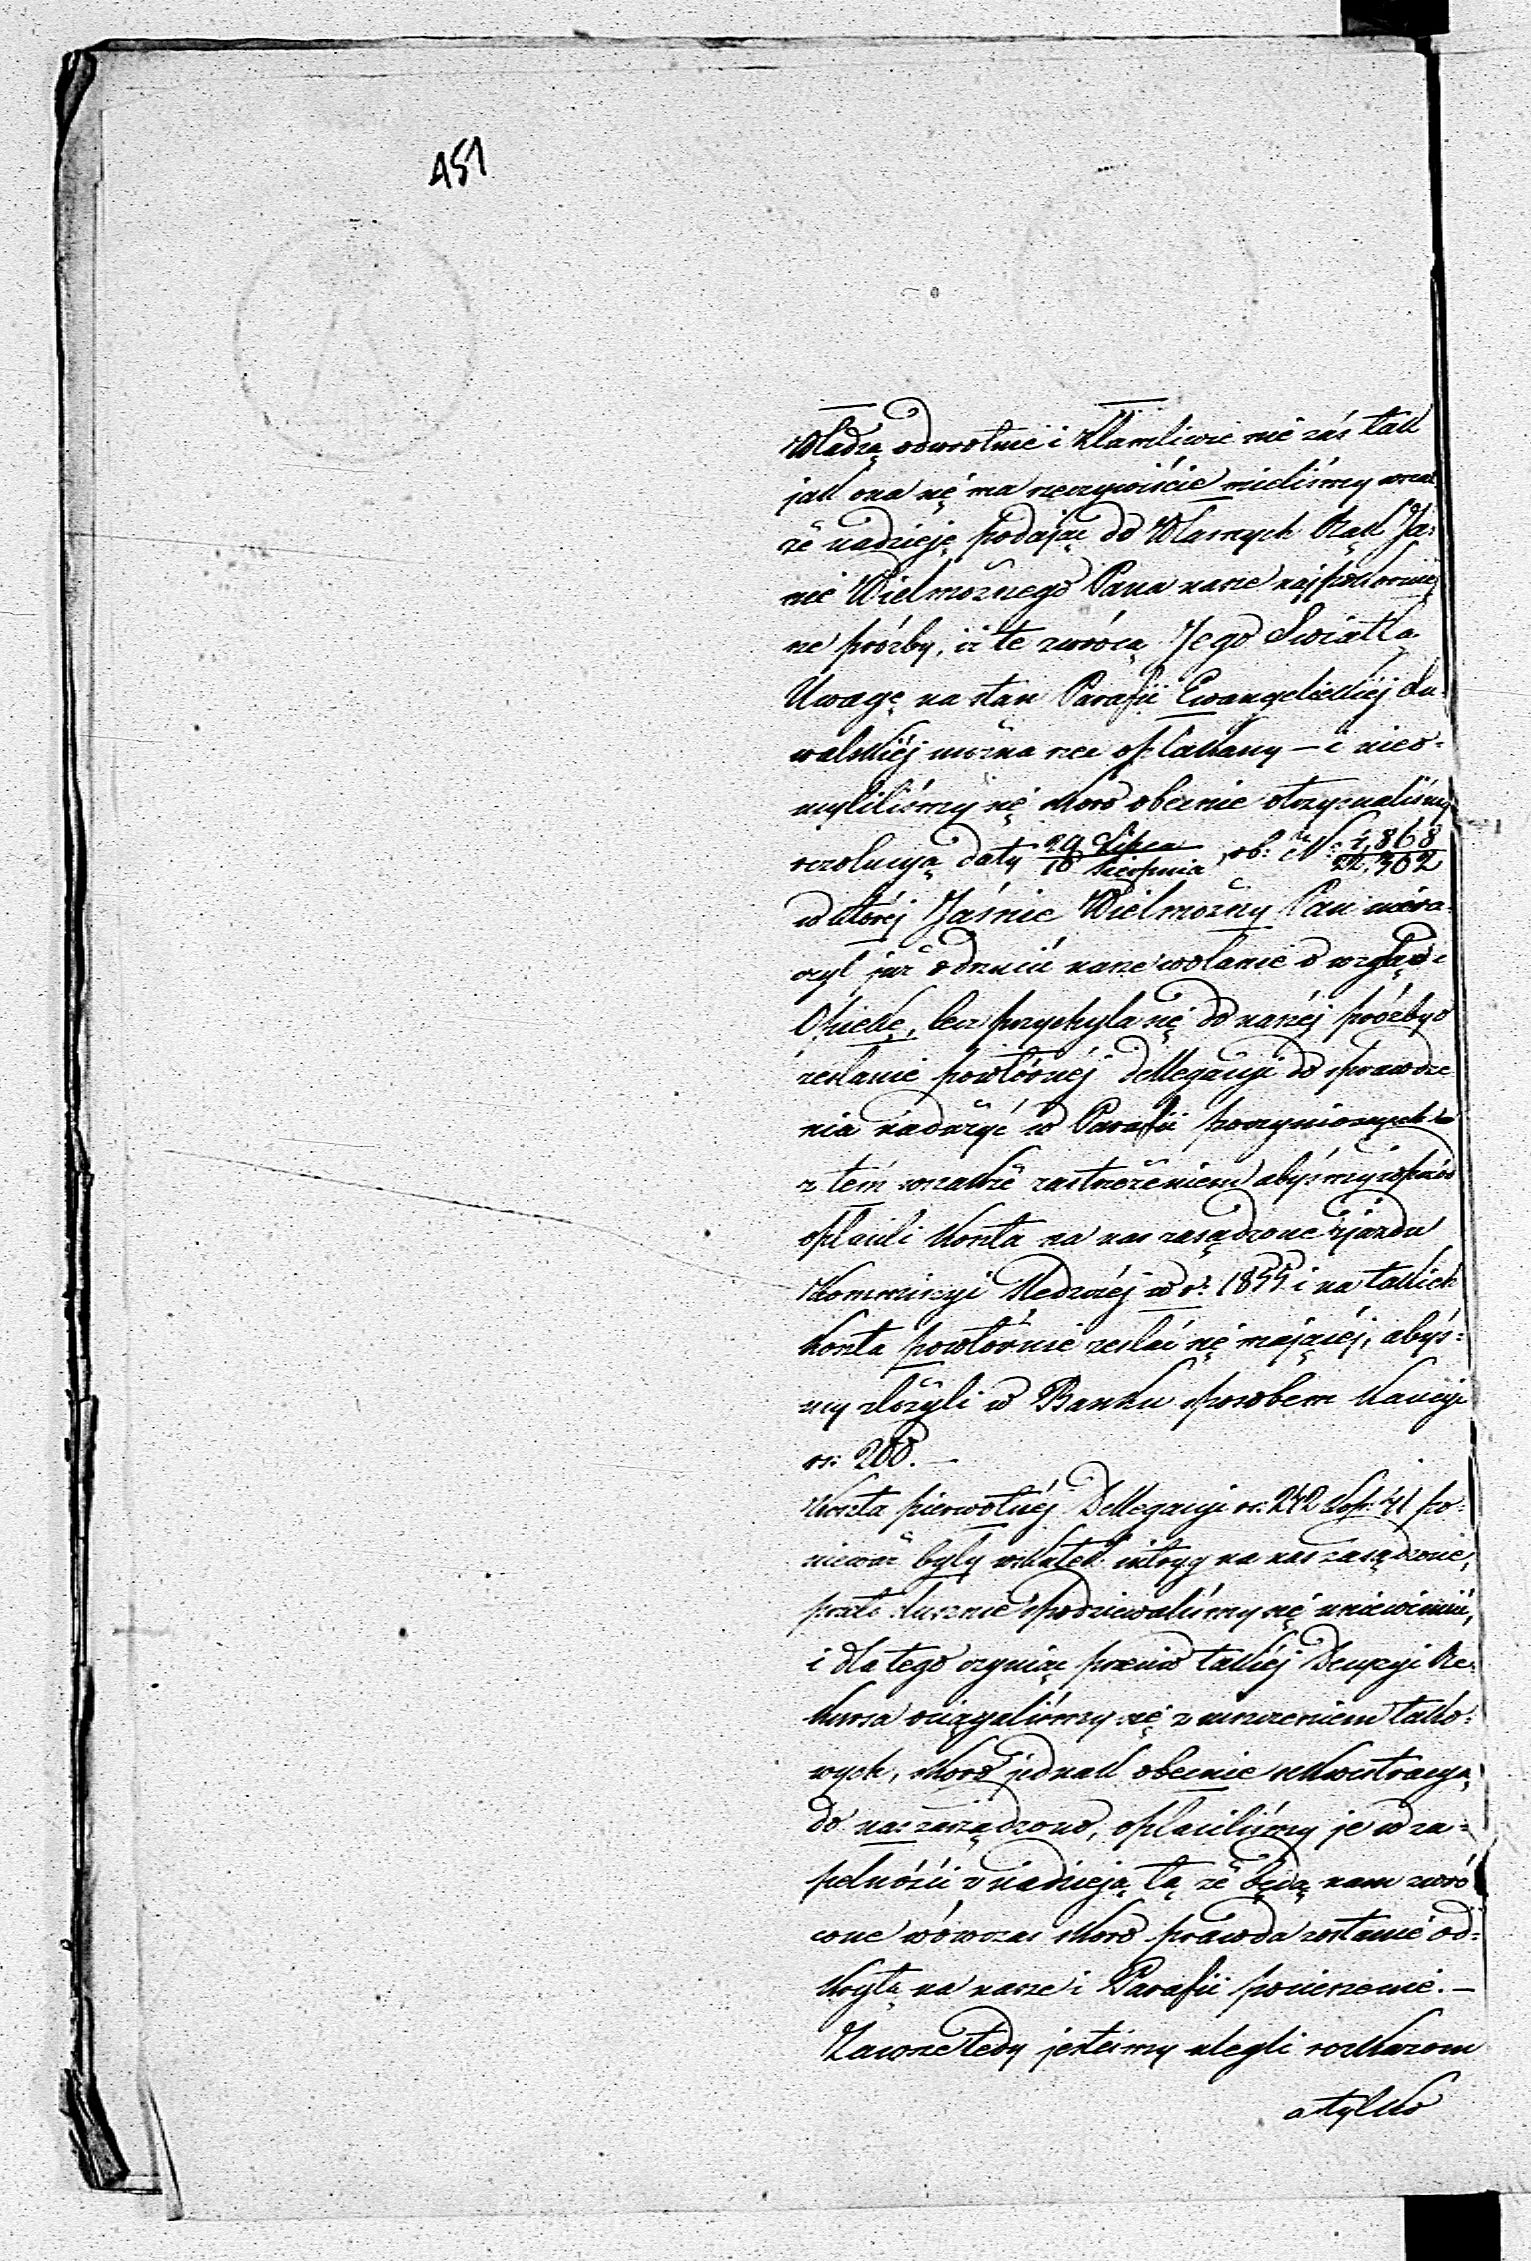 451
Władzą odwrotnie i kłamliwie nie zás tak
jak ona się ma rzeczywiście mieliśmy wraz
że nadzieję podając do Własnych Rąk Ja:
nie Wielmożnego Pana nasze najpokornię
sze próźby, iż te zwrócą Jego Swiatłą
Uwagę na stan Parafii Ewangelickiéj Su
walskiéj można rzec opłakany – i nieo=
myliliśmy się skoro obecnie otrzymaliśmy
rezolucyą daty 29 Lipca / 10 Sierpnia rb: i N: 4,868 / 22,362
w któréj Jaśnie Wielmożny Pan niera
czył już odrzucić nasze wołanie o wzgląd i
Opiekę, lecz przychyla się do naszéj próźby o
zesłanie powtórnéj Dellegacyi do sprawdze
nia nadużyć w Parafii poczynionych
z tém wszakże zastrzeżeniem abyśmy wprzód
opłacili koszta na nas zasądzone zjazdu
Kommissyi Śledczéj w r: 1855 i na takież
koszta powtórnie zesłać się mającéj, abyś=
my złożyli w Banku sposobem Kaucyi
rs: 200. –
Koszta pierwotnéj Dellegacyi rs: 242 kop: 41 po=
nieważ były wskutek intryg na nas zasądzone,
przeto słusznie spodziewaliśmy się uniewinnić,
i dla tego czyniąc przeciw takiéj Decyzyi Re=
kursa ociągaliśmy się z uiszczeniem tako=
wych, skoro jednak obecnie sekwestracyą
do nas zarządzono, opłaciliśmy je w zu=
pełności z nadzieją tą że będą nam zwró
cone wówczas skoro prawda zostanie od=
krytą na nasze i Parafii pocieszenie. –
Zawsze tedy jesteśmy ulegli rozkazom
a tylko